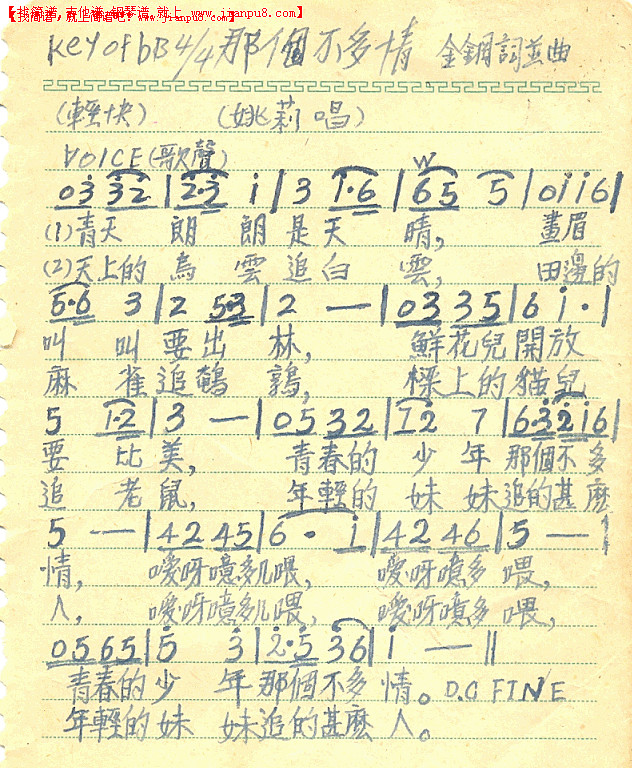 【找简谱，吉他谱，钢琴谱，就上 www.jianpu8.com】
Key of bB 4/4 那個不多情 金鋼詞並曲
(輕快) (姚莉唱)
VOICE (歌聲)
0 3 3 2 | 2·3 i | 3 i·6 | 6 5 5 | 0 i i 6 |
(1)青天 朗 朗 是 天 晴, 畫眉
(2)天上的 烏 雲 追 白 雲, 田邊的
6·6 3 | 2 5·3 | 2 — | 0 3 3 5 | 6 i· |
叫 叫 要 出 林, 鮮花兒 開放
麻 雀 追 鵪 鶉, 樑上的 貓兒
5 1·2 | 3 — | 0 5 3 2 | 1 2 7 | 6 3 2 i 6 |
要 比 美, 青春的 少 年 那個不多
追 老 鼠, 年輕的 妹 妹 追的甚麼
5 — | 4 2 4 5 | 6 · i | 4 2 4 6 | 5 — |
情, 噯呀噫多儿喂, 噯呀噫多 喂,
人, 噯呀噫多儿喂, 噯呀噫多 喂,
0 5 6 5 | 5 3 | 2·5 3 6 | i — ||
青春的 少 年 那個不多 情。 D.C FINE
年輕的 妹 妹 追的甚麼 人。